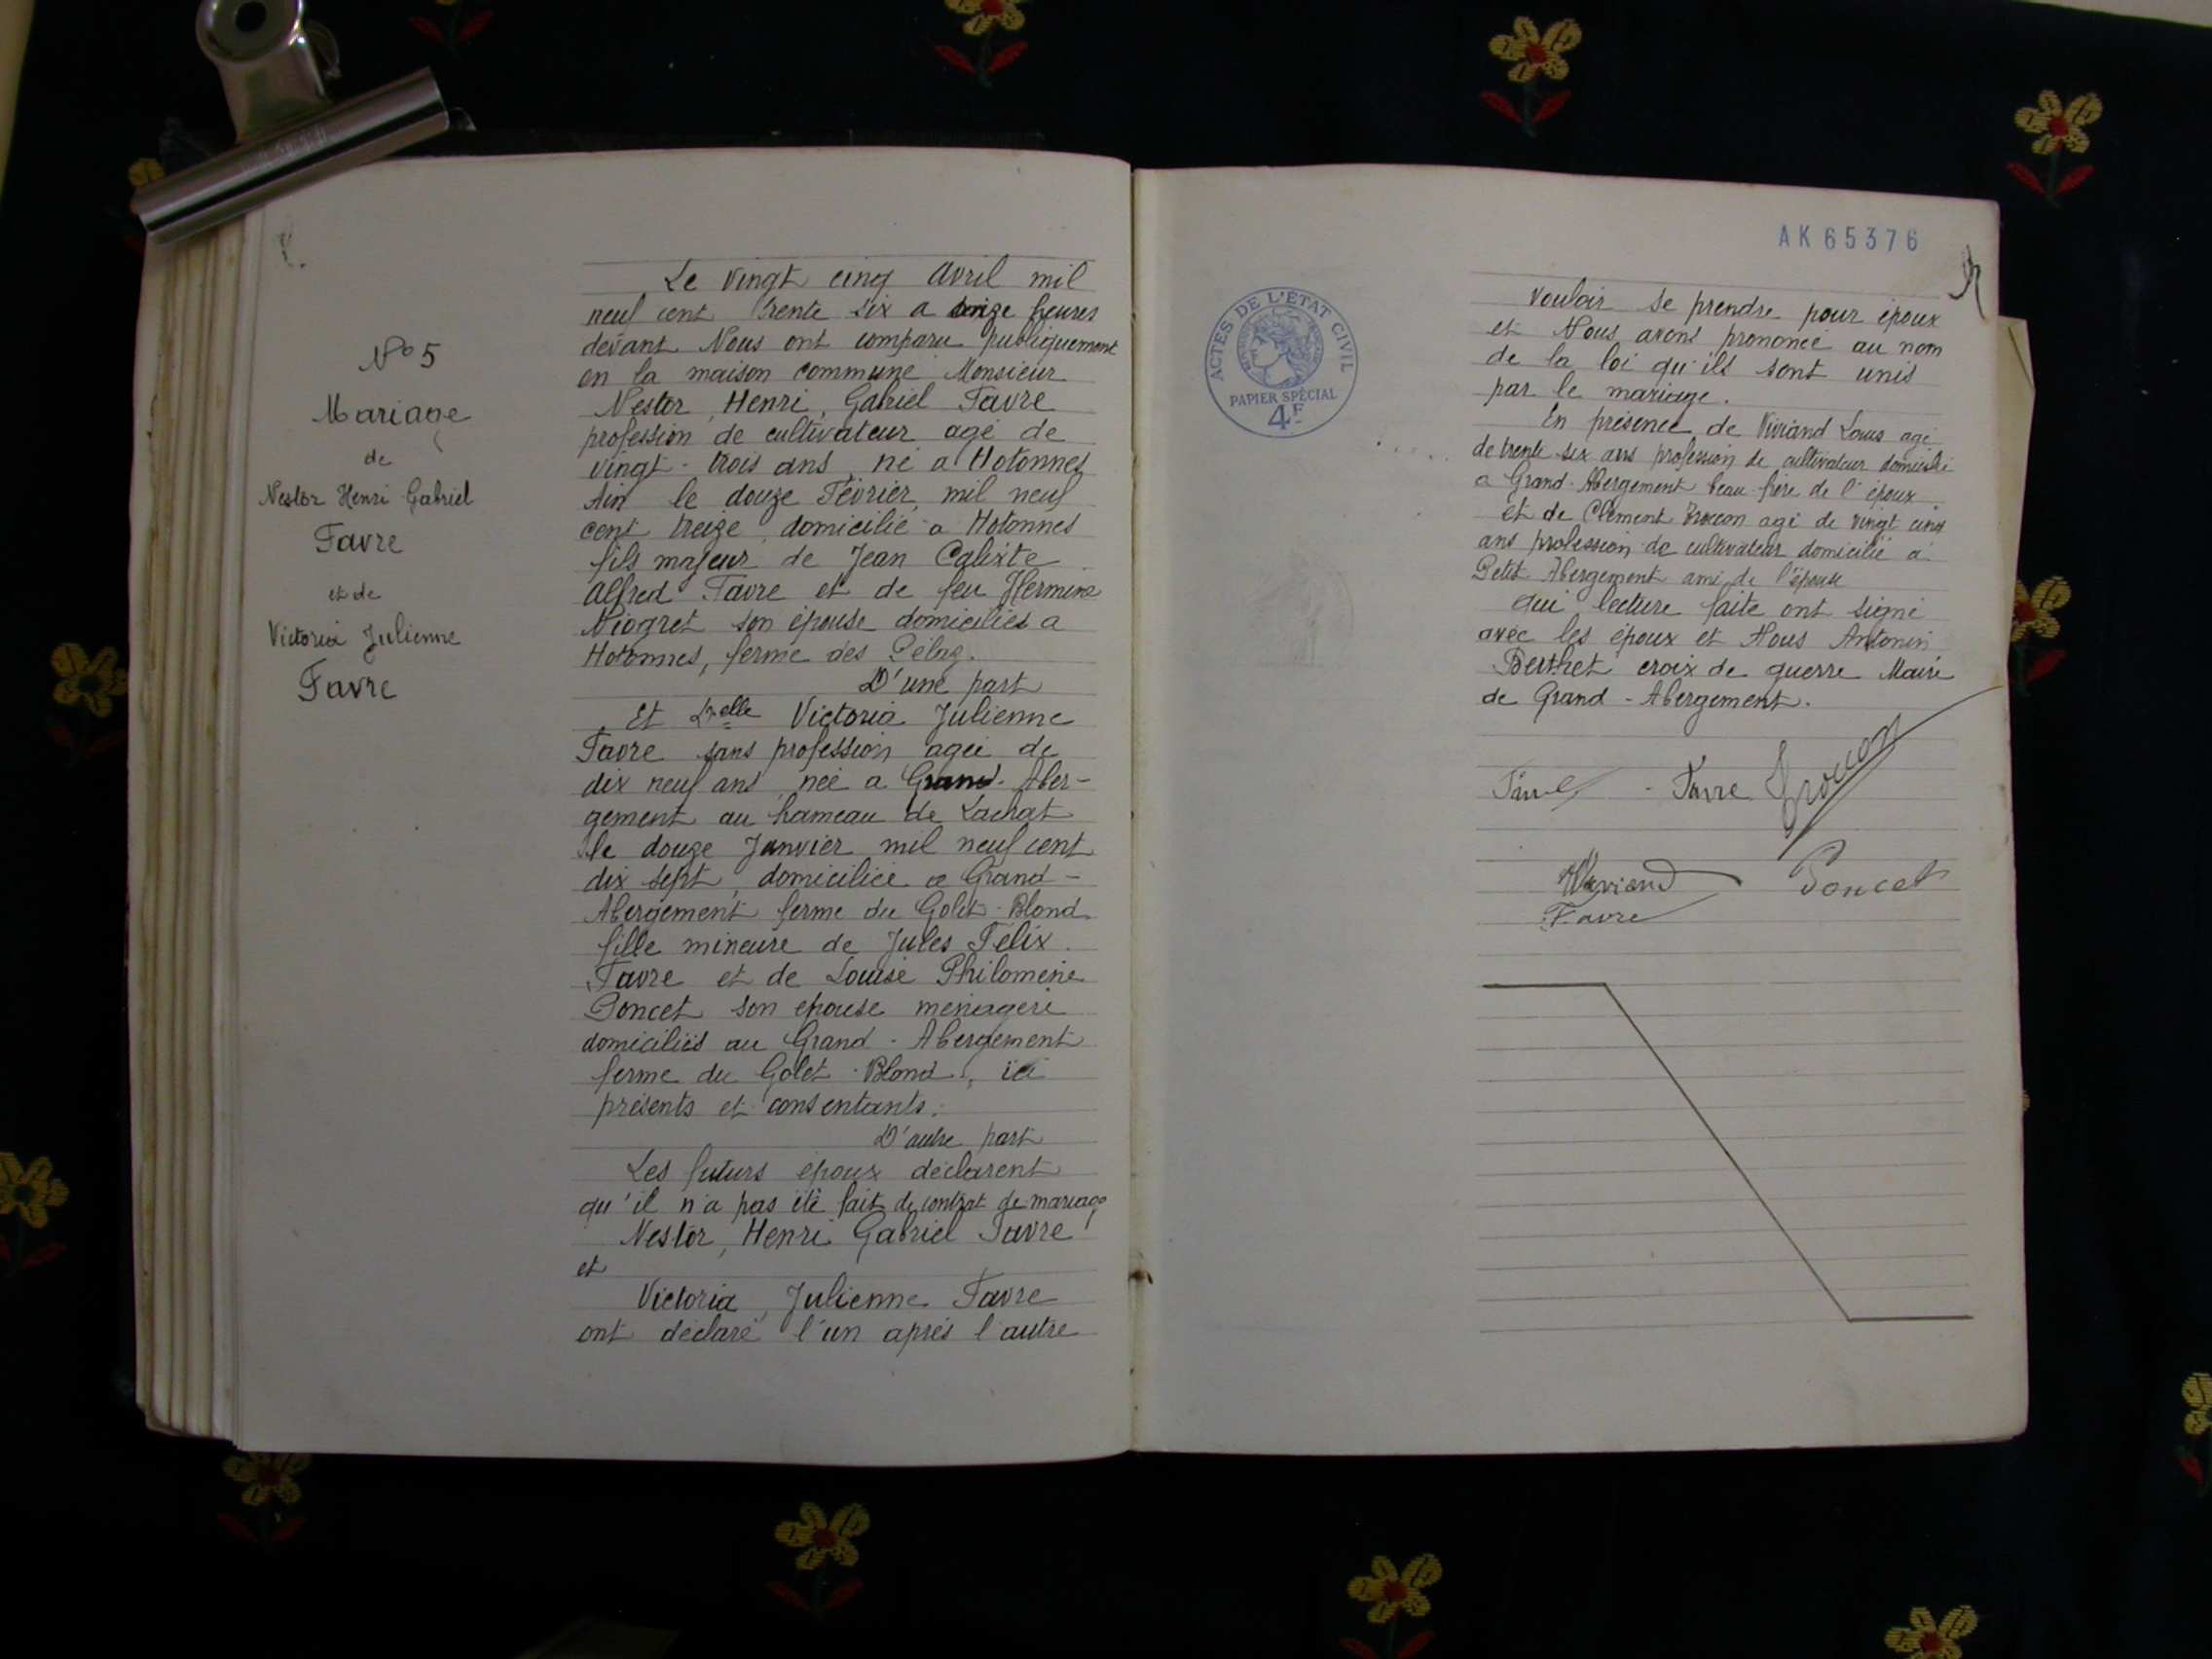 N° 5
Mariage
de
Nestor Henri Gabriel
Favre
et de
Victoria Julienne
Favre
Le vingt cinq Avril mil
neuf cent trente six a heures
devant Nous ont comparu publiquement
en la maison commune Monsieur
Nestor, Henri, Gabriel Favre
profession de cultivateur agé de
vingt-trois ans, né a Hotonnes
Ain le douze Février, mil neuf
cent treize, domicilié a Hotonnes
fils majeur de Jean Calixte
Alfred Favre et de feu Hermine
Niogret son épouse domiciliés a
Hotonnes, ferme des
D'une part
Et Delle Victoria Julienne
Favre sans profession agée de
dix neuf ans, née a Grand-Aber-
gement au hameau de Lachat
le douze Janvier mil neuf cent
dix sept, domiciliée a Grand-
Abergement ferme du Golet-Blond
fille mineure de Jules Félix
Favre et de Louise Philomène
Poncet son épouse ménagère
domiciliés au Grand-Abergement
ferme du Golet-Blond, ici
présents et consentants.
D'autre part
Les futurs époux déclarent
qu'il n'a pas été fait de contrat de mariage
Nestor, Henri Gabriel Favre
et
Victoria, Julienne Favre
ont déclaré l'un après l'autre
AK 65376
ACTES DE L'ÉTAT CIVIL
PAPIER SPÉCIAL
4F
vouloir se prendre pour époux
et Nous avons prononcé au nom
de la loi qu'ils sont unis
par le mariage.
En présence de Viviand Louis agé
de trente six ans profession de cultivateur domicilié
a Grand-Abergement beau-frère de l'époux
et de Clément Troccon agé de vingt cinq
ans profession de cultivateur domicilié a
Petit Abergement ami de l'épouse
qui lecture faite ont signé
avec les époux et Nous Antonin
Berthet croix de guerre Maire
de Grand-Abergement.
Favre Troccon
Viviand Poncet
Favre